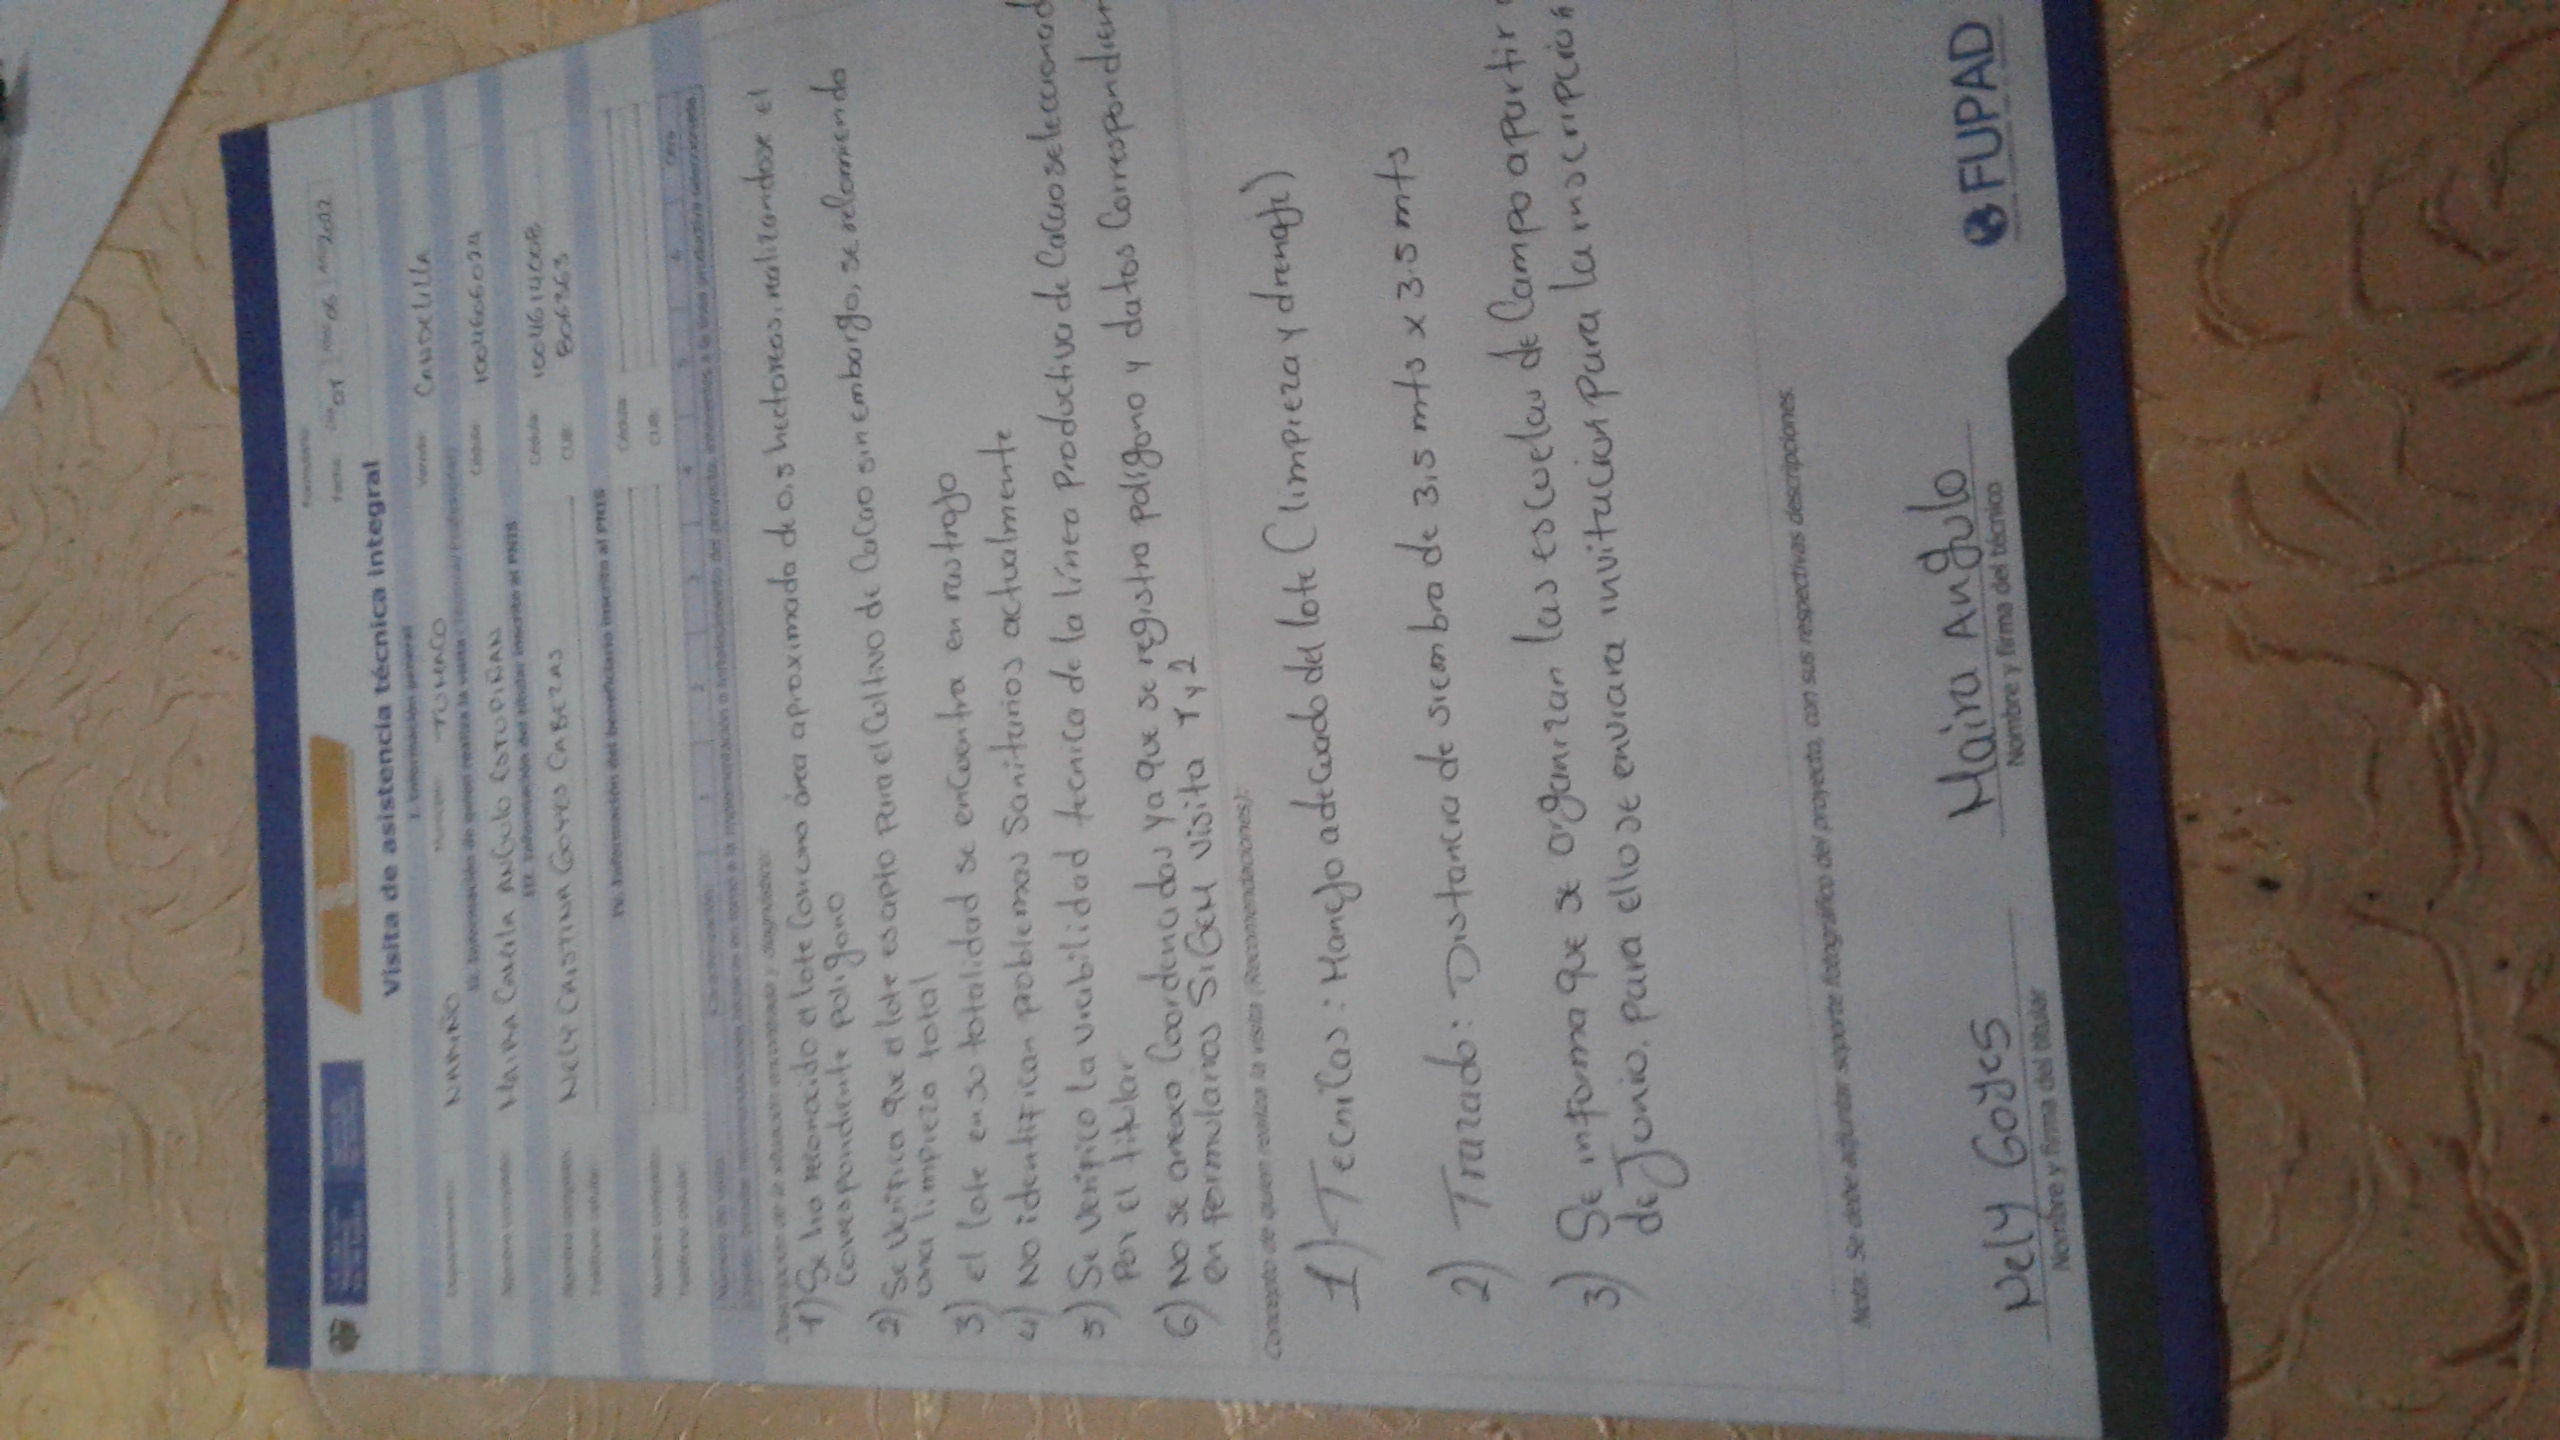 Formulario:
Fecha: Día 01 Mes 06 Año 2022
Visita de asistencia técnica integral
I. Información general
Departamento: NARIÑO Municipio: TUMACO Vereda: CANDELILLA
II. Información de quien realiza la visita
Nombre completo: MAIRA CAMILA ANGULO ESTUPIÑAN Cédula: 1004606024
III. Información del titular inscrito al PNIS
Nombre completo: NELY CRISTINA GOYES CABEZAS Cédula: 1004614008
Teléfono celular: CUB: 806363
IV. Información del beneficiario inscrito al PNIS
Nombre completo: Cédula:
Teléfono celular: CUB:
1 2 3 4 5 6 Otra
Descripción de la situación encontrada y diagnóstico:
1) Se ha reconocido el lote con una área aproximada de 0,5 hectareas, realizandose el
correspondiente poligono
2) Se verifica que el lote es apto para el cultivo de cacao sin embargo, se relomienda
una limpieza total
3) el lote en su totalidad se encuentra en rastrojo
4) No identifican problemas Sanitarios actualmente
5) Se verifico la viabilidad tecnica de la línea productiva de Cacao
por el titular
6) No se anexo Coordenadas ya que se registra polígono y datos
en formularios SIGEM visita 1 y 2
Concepto de quien realiza la visita (Recomendaciones):
1) Tecnicas: Manejo adecuado del lote (limpieza y drenaje)
2) Trazado: Distancia de siembra de 3,5 mts x 3.5 mts
3) Se informa que se organizan las escuelas de Campo apartir
de Junio, para ello se enviara invitación para la inscripción
Nota: Se debe adjuntar soporte fotográfico del proyecto, con sus respectivas descripciones.
Nely Goyes Maira Angulo
Nombre y firma del titular Nombre y firma del técnico
FUPAD